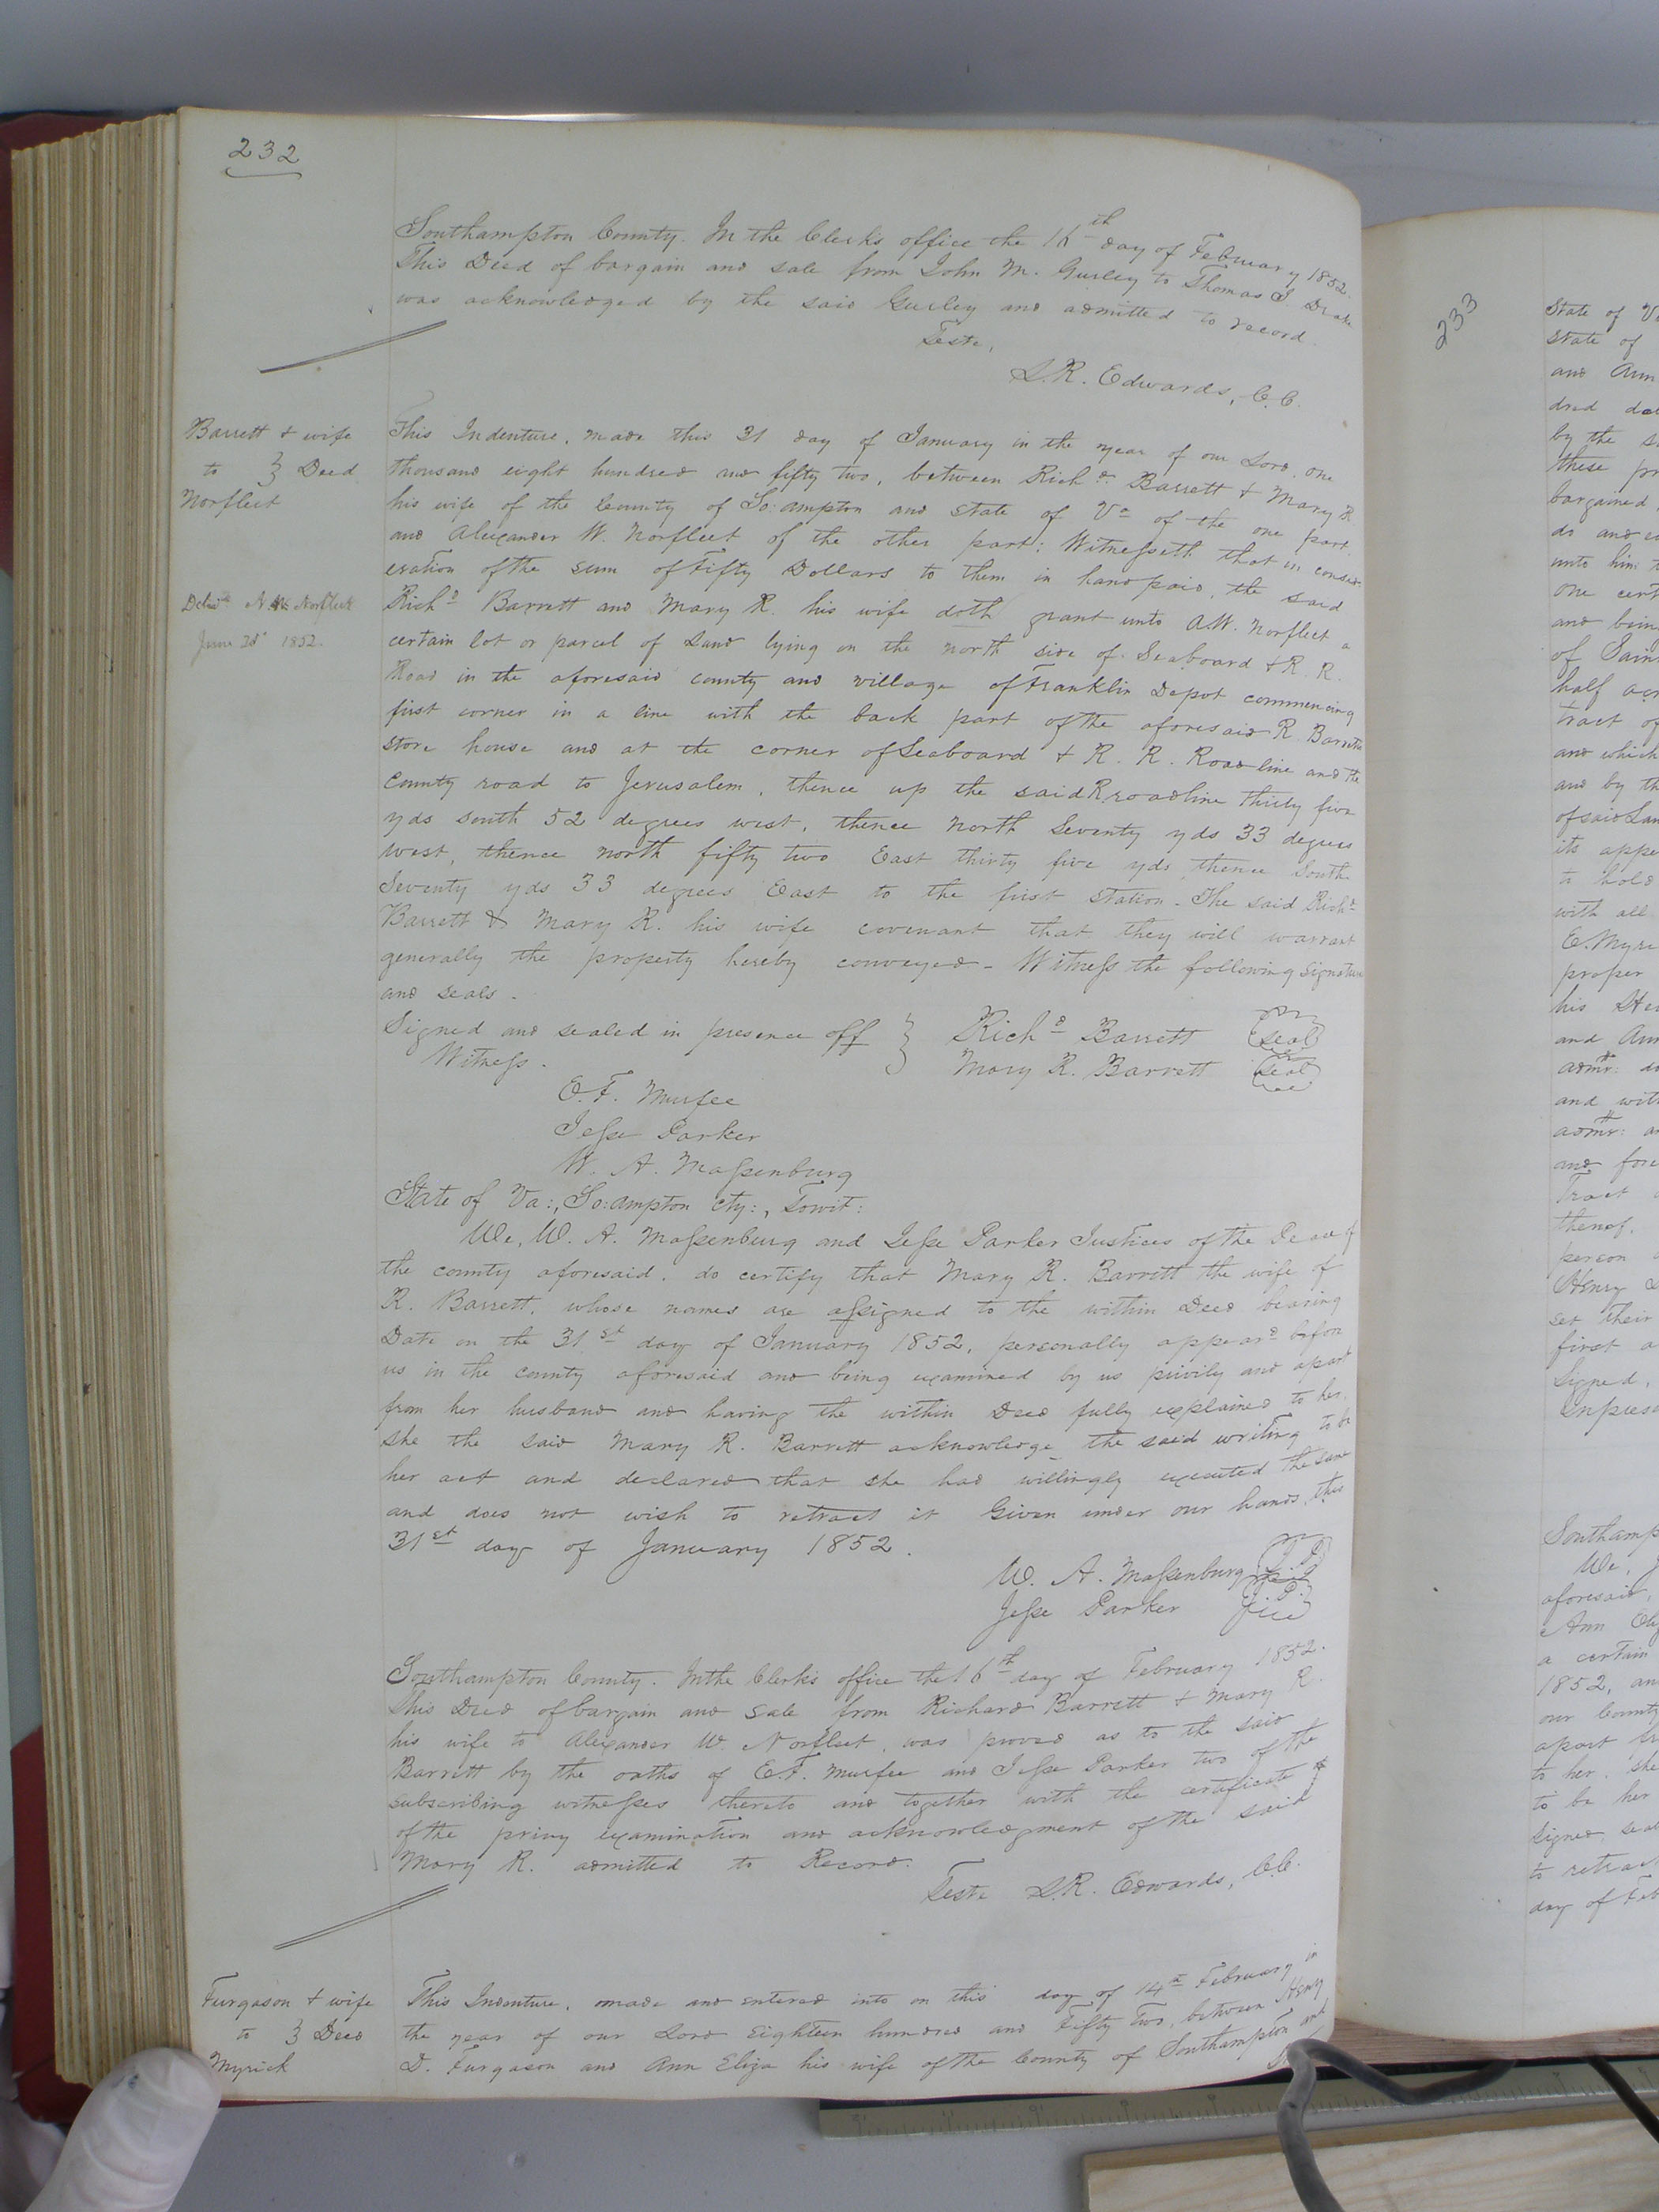 232
Southampton County. In the Clerks office the 16th day of February 1852.
This Deed of bargain and sale from John M. Gurley to Thomas J Drake
was acknowledged by the said Gurley and admitted to record.
Teste,
L.R. Edwards, C.C.
Barrett & wife
to } Deed
Norfleet
Norfleet
June 1852.
This Indenture, made this 31 day of January in the year of our Lord, one
thousand eight hundred and fifty two, between Richd Barrett & Mary R
his wife of the County of So:ampton and state of Va of the one part,
and Alexander W. Norfleet of the other part; Witnesseth that in consid-
eration of the sum of Fifty Dollars to them in hand paid, the said
Richd Barrett and Mary R. his wife doth grant unto A.W. Norfleet a
certain lot or parcel of Land lying on the north side of Seaboard & R. R.
Road in the aforesaid county and village of Franklin Depot commencing
first corner in a line with the back part of the aforesaid R. Barretts
store house and at the corner of Seaboard & R. R. Road line and the
County road to Jerusalem, thence up the said R.road line thirty five
yds south 52 degrees west, thence North Seventy yds 33 degrees
west, thence north fifty two East thirty five yds, thence South
Seventy yds 33 degrees East to the first Station - The said Richd
Barrett & Mary R. his wife covenant that they will warrant
generally the property hereby conveyed - Witness the following signatures
and seals.
Signed and sealed in presence off } Richd Barrett seal
Witness. Mary R. Barrett seal
E.F. Murfee
Jesse Parker
W. A. Massenburg
State of Va:, So:ampton cty:, Towit:
We, W. A. Massenburg and Jesse Parker Justices of the Peace of
the county aforesaid, do certify that Mary R. Barrett the wife of
R. Barrett, whose names are assigned to the within Deed bearing
Date on the 31st day of January 1852, personally appeard before
us in the county aforesaid and being examined by us privily and apart
from her husband and having the within Deed fully explained to her,
she the said Mary R. Barrett acknowledge the said writing to be
her act and declared that she had willingly executed the same
and does not wish to retract it Given under our hands, this
31st day of January 1852.
W. A. Massenburg
Jesse Parker
Southampton County. In the Clerk's office the 16th day of February 1852.
This Deed of bargain and sale from Richard Barrett & Mary R.
his wife to Alexander W. Norfleet, was proved as to the said
Barrett by the oaths of E.F. Murfee and Jesse Parker two of the
subscribing witnesses thereto and together with the certificate of
of the privy examination and acknowledgment of the said
Mary R. admitted to Record.
Teste L.R. Edwards, C.C.
Furgason & wife
to } Deed
Myrick
This Indenture, made and entered into on this day of 14th February in
the year of our Lord Eighteen hundred and Fifty Two, between Henry
D. Furgason and Ann Eliza his wife of the County of Southampton and
233
State of
State of
and Ann
by the
these
bargained,
unto him
one
and
of
half
tract of
and which
and by
of said
its
to hold
with all
E. Myri
proper
his
and
and
and with
and
Tract
thereof.
person
Henry
set their
first
Signed,
Southamp
We,
aforesaid,
Ann
a certain
1852,
our County
apart
to her, she
to be her
signed,
to
day of